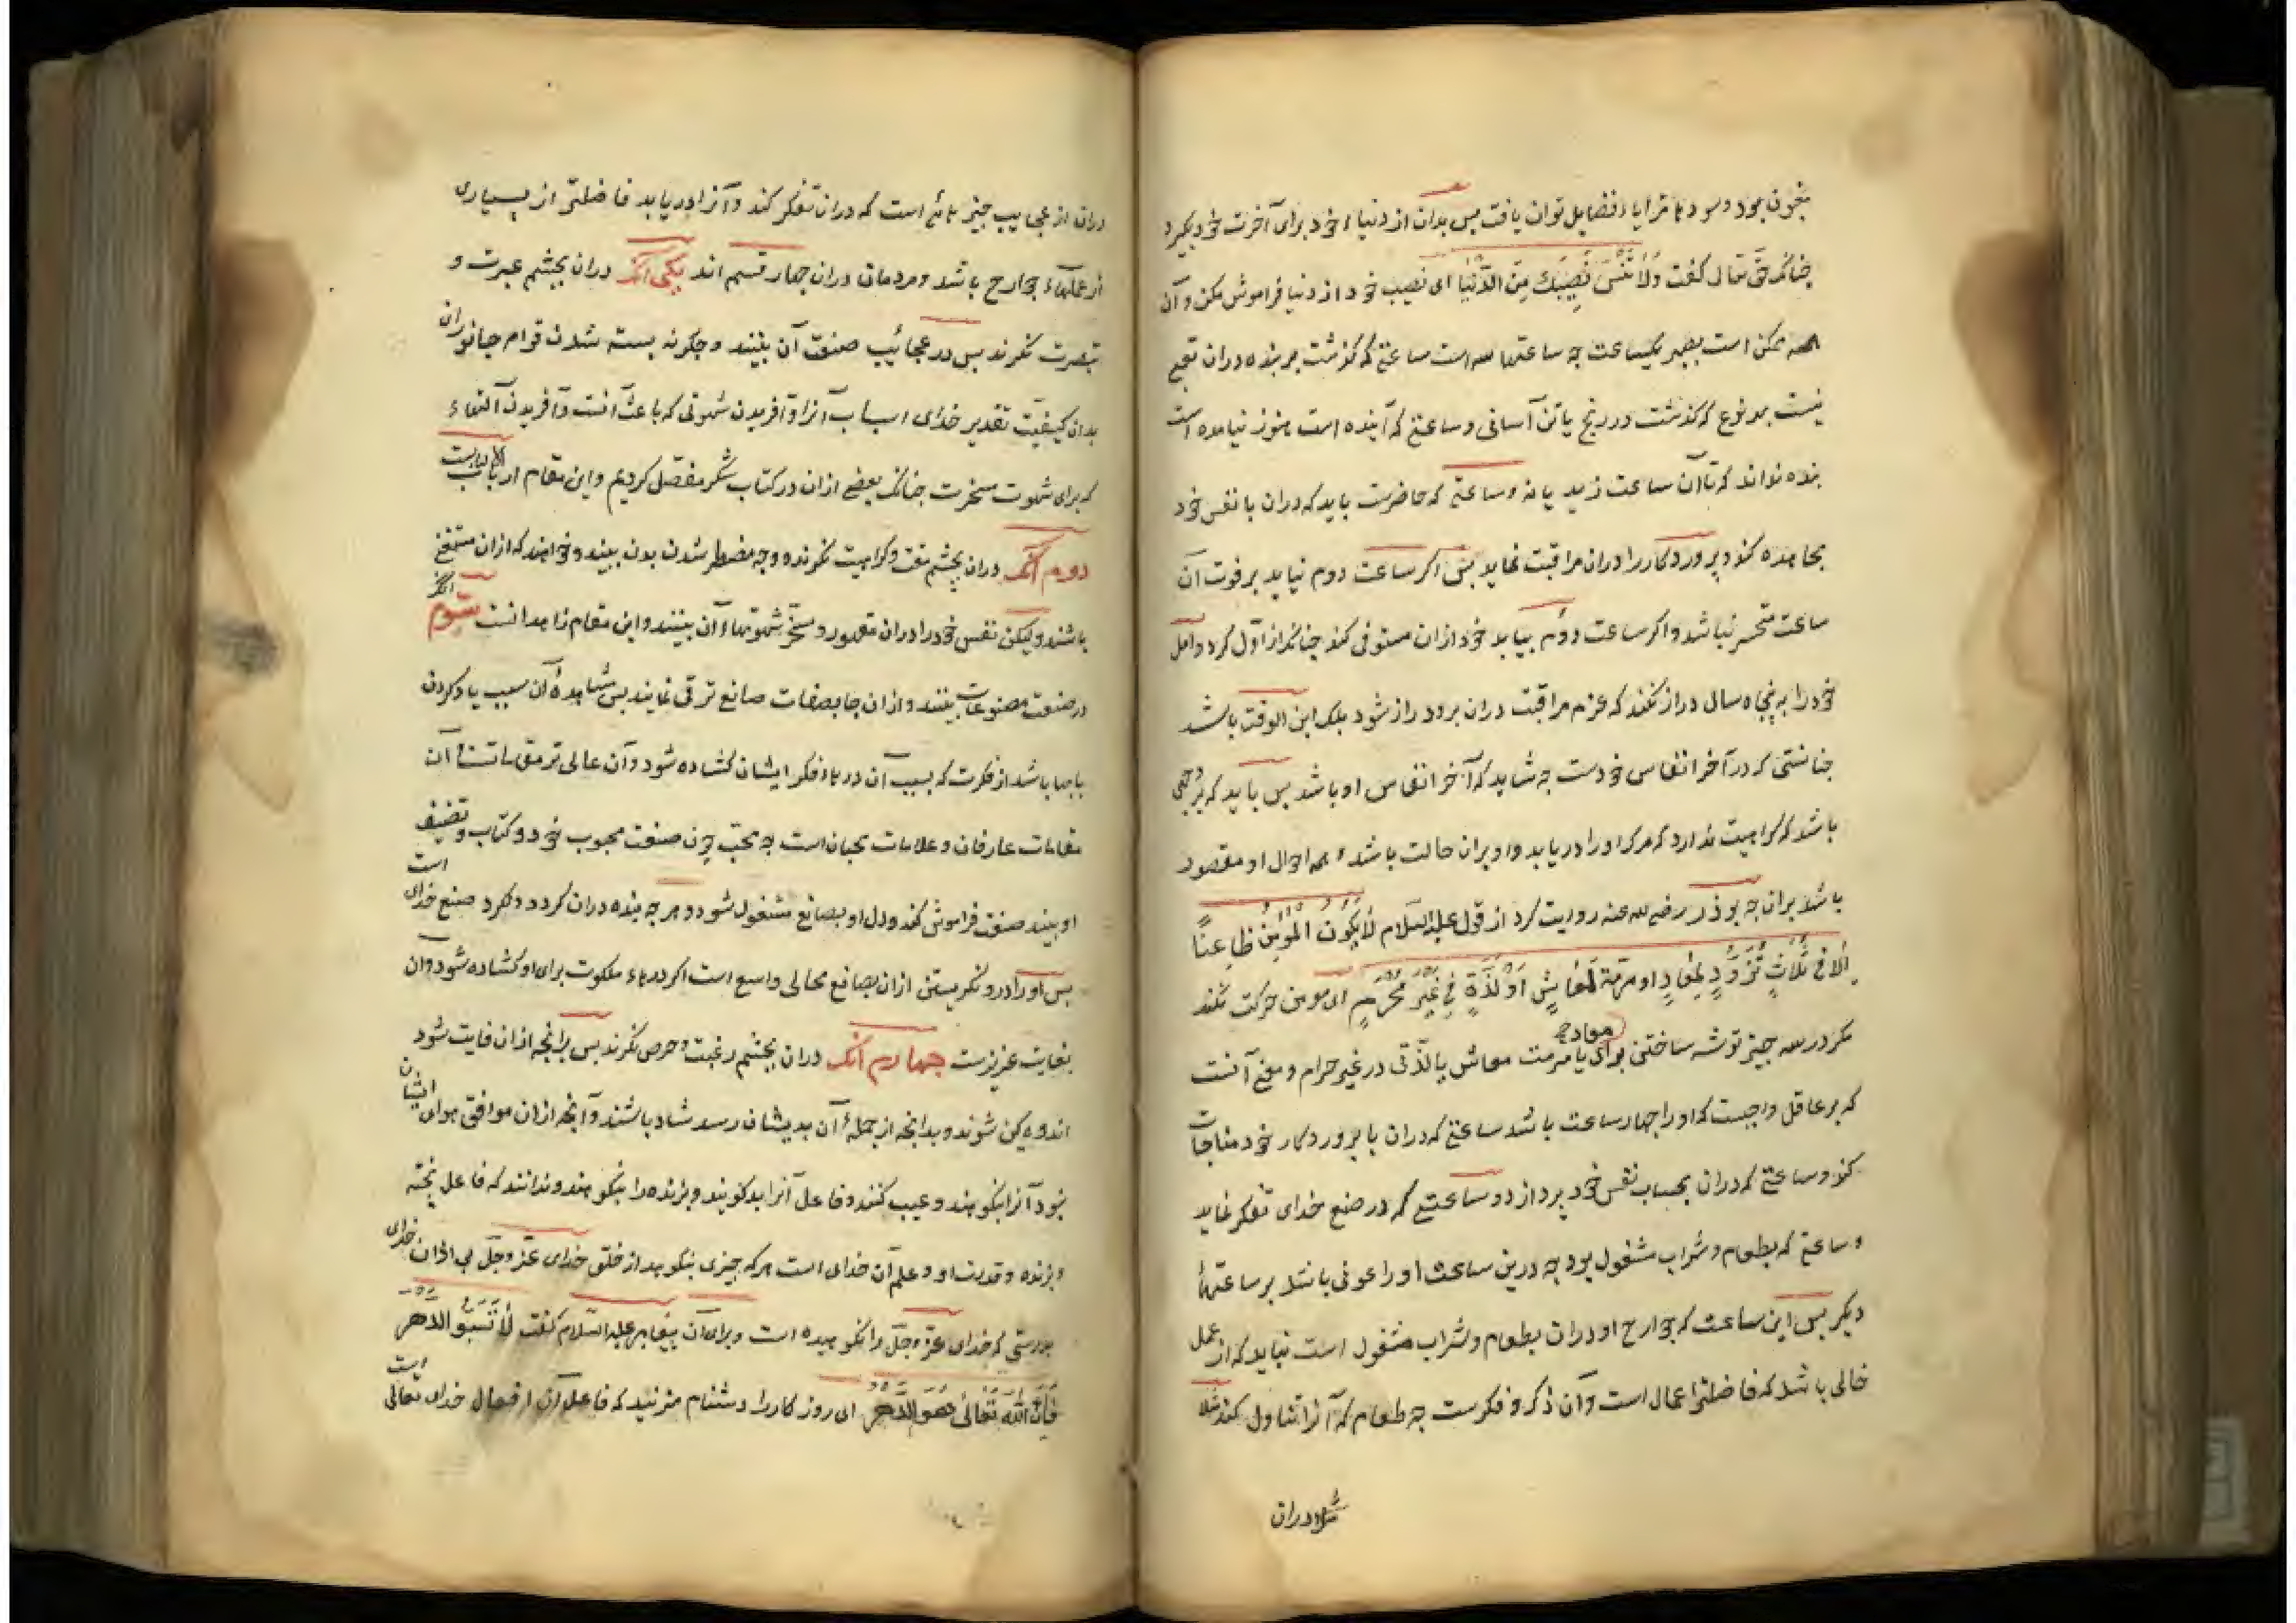 بغبون بود وسود با مزایاء فضایل توان یافت پس بدان از دنیاء خود برای آخرت خود بگیرد
چنانکه حق تعالی گفت وَلَا تَنْسَ نَصِيبَكَ مِنَ الدُّنْيَا ای نصیب خود از دنیا فراموش مکن و آن
همه ممکن است بصبر یکساعت چه ساعتها سه است ساعتی که گذشت بر بنده دران تعبی
نیست بهر نوع که گذشت در رنج یا تن آسانی و ساعتی که آینده است هنوز نیامده است
بنده نداند که تا آن ساعت زید یا نه و ساعتی که حاضرست باید که دران با نفس خود
مجاهده کند و پروردکار را دران مراقبت نماید پس اکر ساعت دوم نیاید بر فوت آن
ساعت متحسر نباشد و اکر ساعت دوم بیاید خود ازان مستوفی کند چنانکه از اول کرد و امل
خود را به پنجاه سال دراز نکند که عزم مراقبت دران برو دراز شود بلکه ابن الوقت باشد
چنانستی که در آخر انفاس خودست چه شاید که آخر انفاس او باشد پس باید که بر وجهی
باشد که کراهیت ندارد که مرک او را دریابد و او بران حالت باشد و همه احوال او مقصور
باشد بران چه بوذر رضی الله عنه روایت کرد از قول علیه السلام لَا يَكُونُ الْمُؤْمِنُ ظَاعِنًا
اِلَّا فِي ثَلَاثٍ تَزَوُّدٍ لِمَعَادٍ او مرمة لمعاشٍ اَوْ لَذَّةٍ فِي غَيْرِ مُحَرَّمٍ ای مومن حرکت نکند
مکر در سه چیز توشه ساختن برای معاد یا مرمت معاش یا لذتی در غیر حرام و معنی آنست
که بر عاقل واجبست که او را چهار ساعت باشد ساعتی که دران با پروردکار خود مناجات
کند و ساعتی که دران بحساب نفس خود پردازد و ساعتی که در صنع خدای تفکر نماید
و ساعتی که بطعام و شراب مشغول بود چه درین ساعت او را عونی باشد بر ساعتهاء
دیکر پس این ساعت که جوارح او دران بطعام و شراب مشغول است نباید که از عمل
خالی باشد که فاضلترا عمال است و آن ذکر و فکرست چه طعام که آنرا تناول کند مثلا
مثلا دران
دران از عجایب چیزهائی است که دران تفکر کند و آنرا دریابد فاضلتر از بسیاری
از عملهاء جوارح باشد و مردمان دران چهار قسم اند یکی آنکه دران بچشم عبرت و
تبصرت نکرند پس در عجائب صنعت آن بینند و چکونه بسته شدن قوام جانوران
بدان کیفیت تقدیر خدای اسباب آنرا و آفریدن شهوتی که باعث آنست و آفریدن آلتهاء
که برای شهوت مسخرست چنانکه بعضی ازان در کتاب شکر مفصل کردیم و این مقام ارباب الالبابست
دوم آنکه دران بچشم مقت و کراهیت نکرند و وجه مضطر شدن بدن بینند و خواهند که ازان مستغنی
باشند ولیکن نفس خود را دران مقهور و مسخر شهوتهاء آن بینند و این مقام زاهدانست سوم آنکه
در صنعت مصنوعات بینند و ازان جا بصفات صانع ترقی نمایند پس مشاهدهٔ آن سبب یاد کردن
بابها باشد از فکرت که بسبب آن درهاء فکر ایشان کشاده شود و آن عالی تر مقاماتست آن
مقامات عارفان و علامات محبان است چه محب چون صنعت محبوب خود و کتاب و تصنیف
او بیند صنعت فراموش کند و دل او بصانع مشغول شود و هر چه بنده دران کردد و نکرد صنع خدای است
پس او را در و نکریستن ازان بصانع مجالی واسع است اکر درهاء ملکوت برای او کشاده شود و آن
بغایت عزیزست چهارم آنکه دران بچشم رغبت و حرص نکرند پس بر انچه ازان فایت شود
اندوهکین شوند و بدانچه از جملهٔ آن بدیشان رسد شاد باشند و آنچه ازان موافق هوای ایشان
نبود آنرا بنکوهند و عیب کنند و فاعل آنرا بد کویند و پزنده را بنکوهند و ندانند که فاعل پخته
و پزنده و قدرت او و علم آن خدای است هر که چیزی بنکوهد از خلق خدای عز و جل بی اذن خدای
بدرستی که خدای عز و جل را نکوهیده است و برای آن پیغامبر علیه السلام کفت لَا تَسُبُّوا الدَّهْر
فَاِنَّ اللهَ تَعَالَى هُوَ الدَّهْر ای روزکار را دشنام مزنید که فاعل آن افعال خدای تعالی است